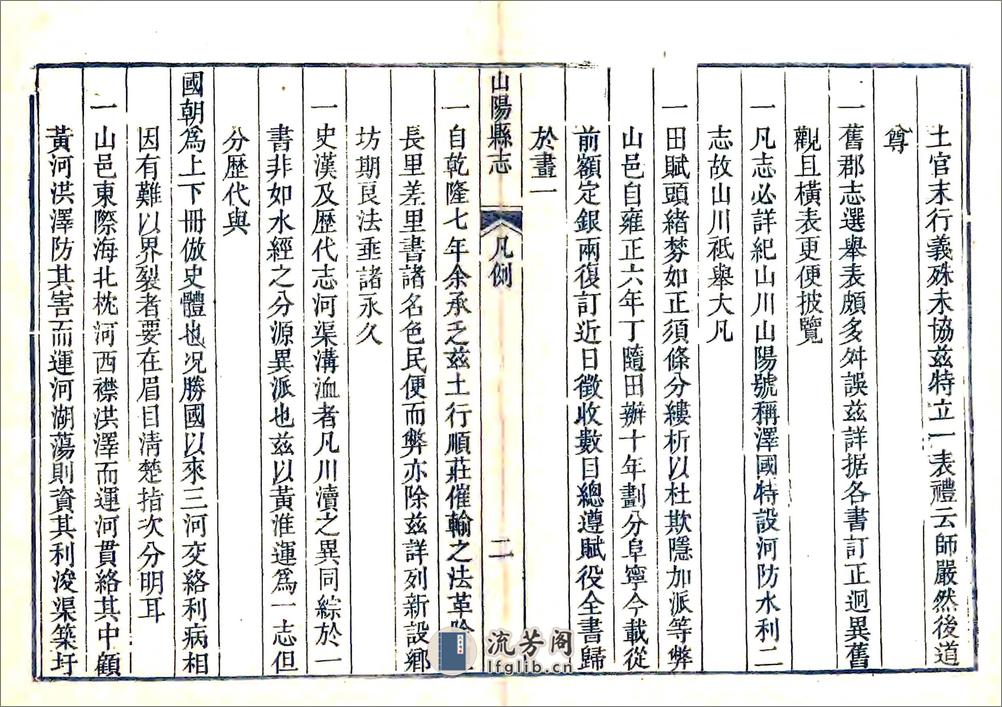 土官末行義殊未協茲特立一表禮云師嚴然後道
尊
一舊郡志選舉表頗多舛誤茲詳据各書訂正迥異舊
觀且橫表更便披覽
一凡志必詳紀山川山陽號稱澤國特設河防水利二
志故山川祗舉大凡
一田賦頭緒棼如正須條分縷析以杜欺隱加派等弊
山邑自雍正六年丁隨田辦十年劃分阜寧今載從
前額定銀兩復訂近日徵收數目總遵賦役全書歸
於畫一
山陽縣志
凡例
二
一自乾隆七年余承乏茲土行順莊催輸之法革
長里差里書諸名色民便而弊亦除茲詳列新設鄉
坊期良法垂諸永久
一史漢及歷代志河渠溝洫者凡川瀆之異同綜於一
書非如水經之分源異派也茲以黃淮運爲一志但
分歷代與
國朝爲上下冊倣史體也况勝國以來三河交絡利病相
因有難以界裂者要在眉目清楚指次分明耳
一山邑東際海北枕河西襟洪澤而運河貫絡其中顧
黃河洪澤防其害而運河湖蕩則資其利浚渠築圩
流芳阁
lfglib.cn